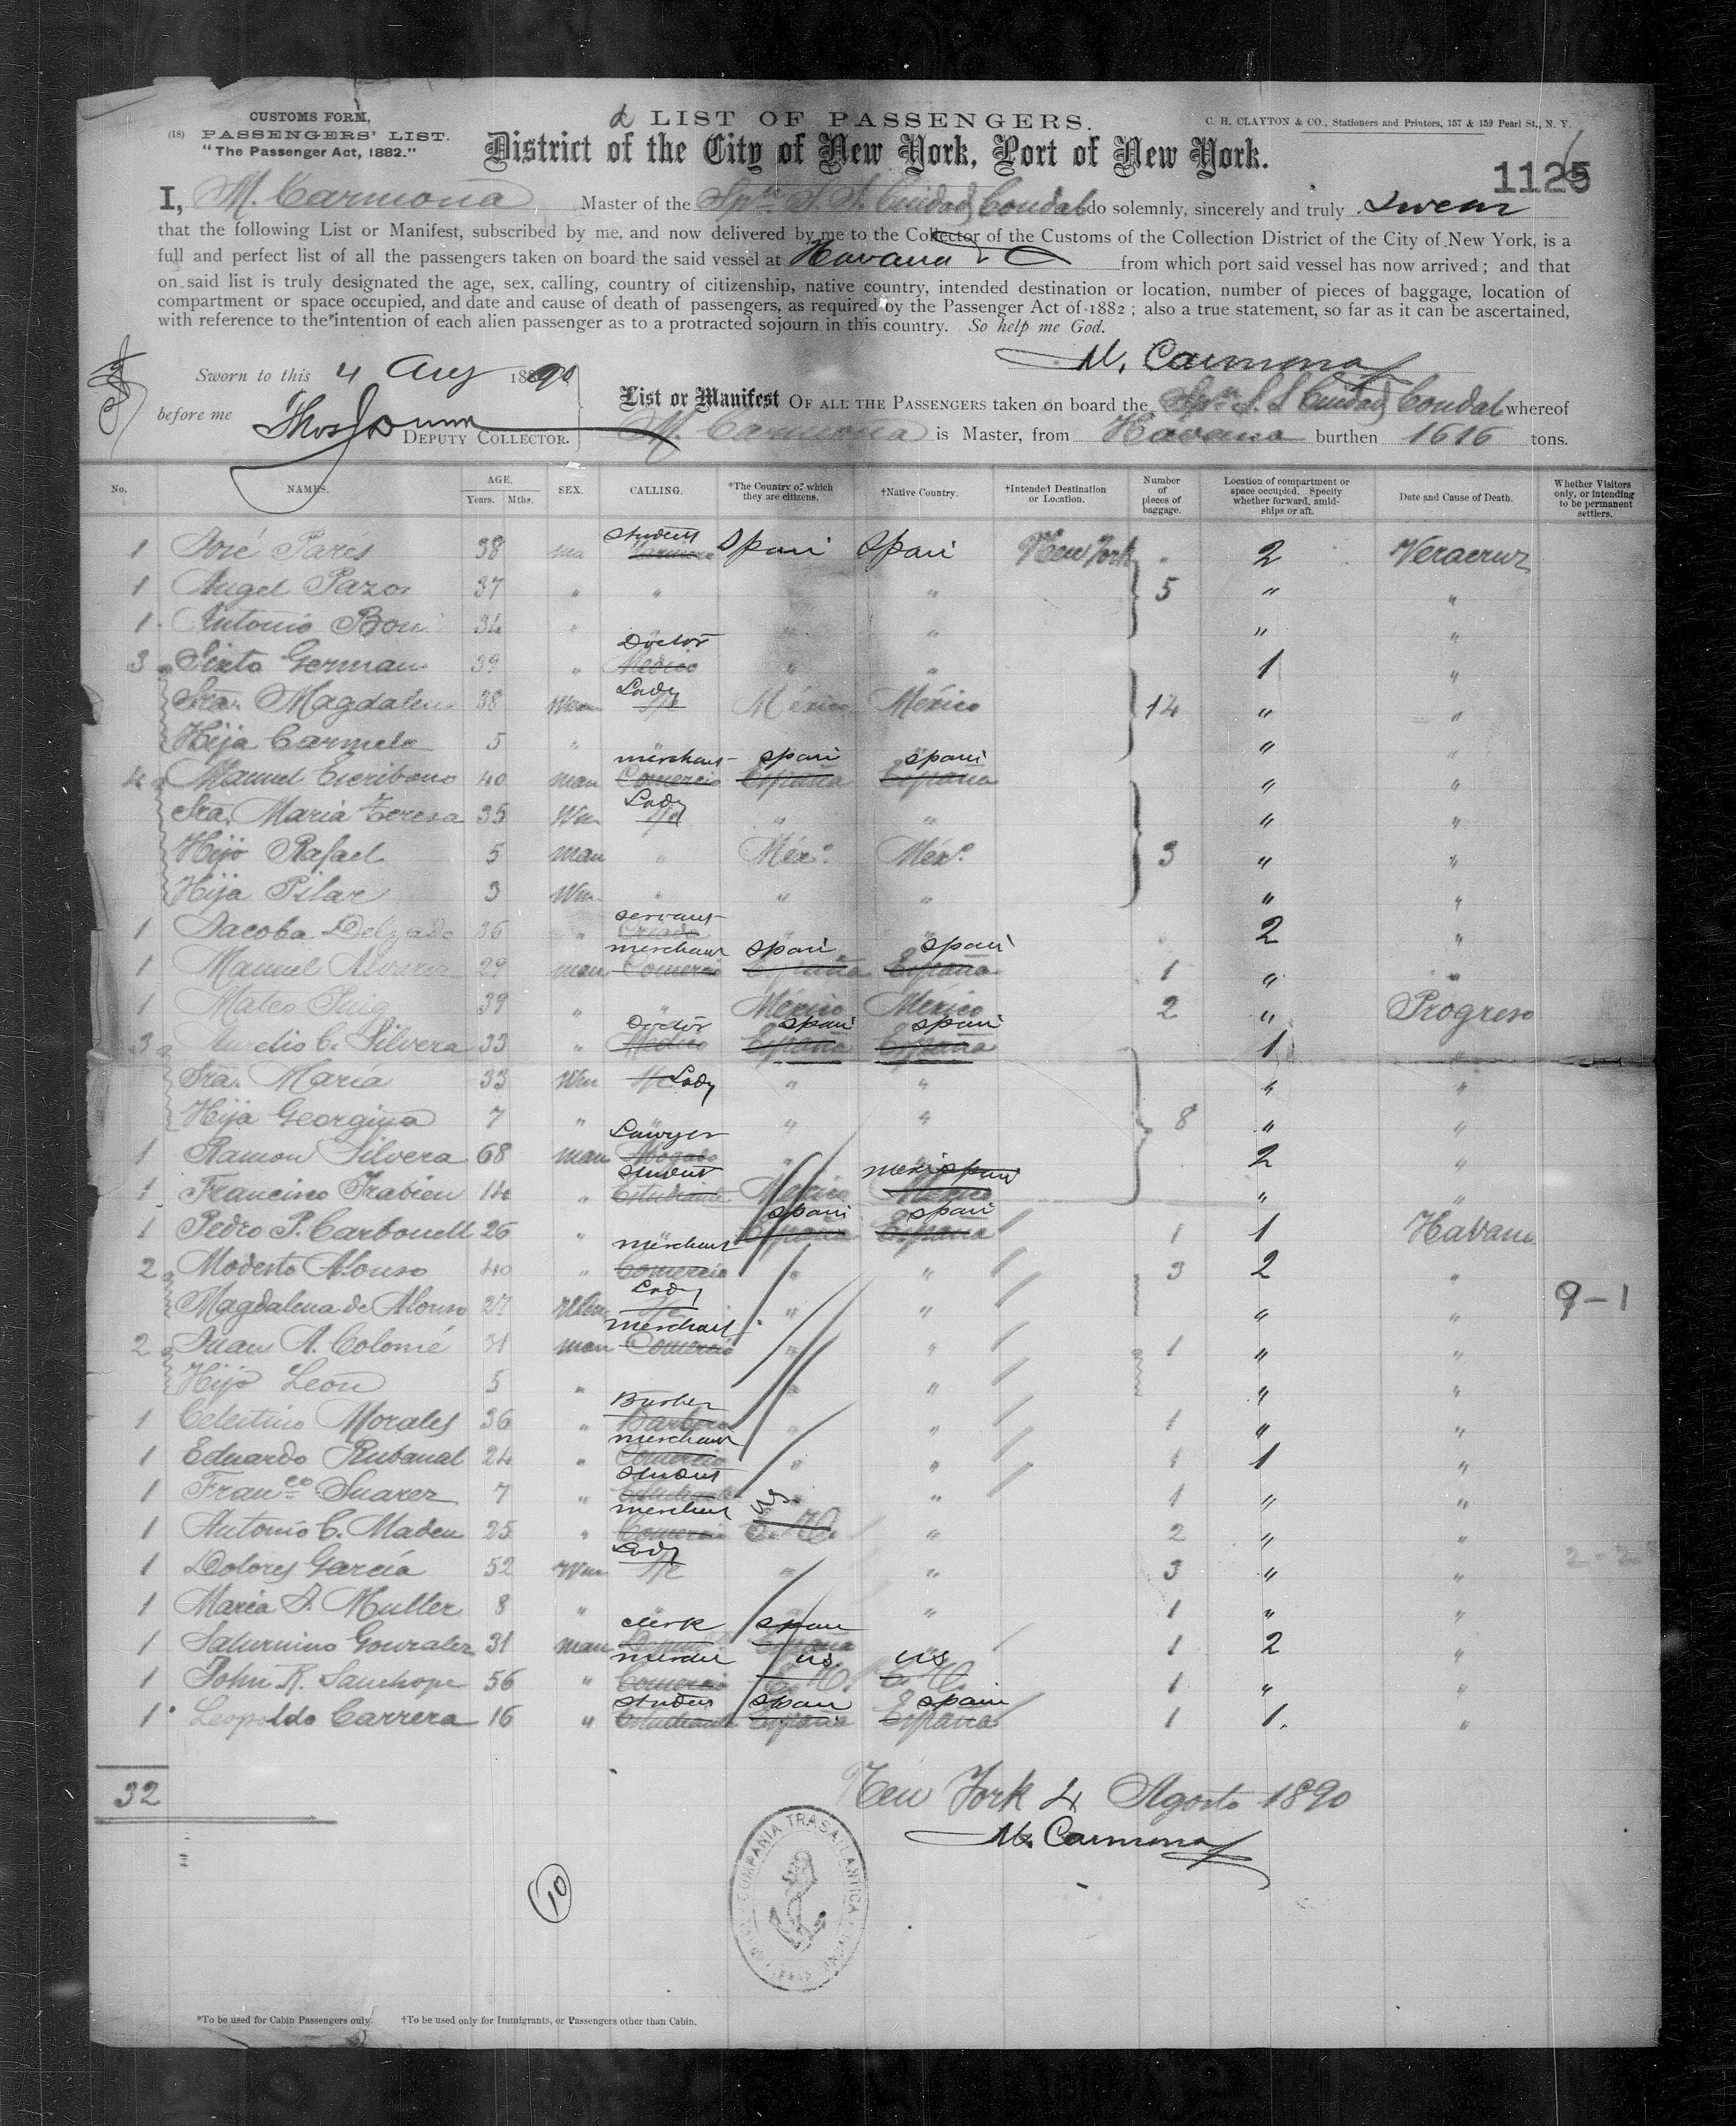 CUSTOMS FORM,
(18) PASSENGERS' LIST.
"The Passenger Act, 1882."
LIST OF PASSENGERS.
C. H. CLAYTON & CO., Stationers and Printers, 157 & 159 Pearl St., N. Y.
District of the City of New York, Port of New York.
1125
I, M. Carmona Master of the Spn. S. S. Ciudad Condal do solemnly, sincerely and truly swear
that the following List or Manifest, subscribed by me, and now delivered by me to the Collector of the Customs of the Collection District of the City of New York, is a
full and perfect list of all the passengers taken on board the said vessel at Havana from which port said vessel has now arrived; and that
on said list is truly designated the age, sex, calling, country of citizenship, native country, intended destination or location, number of pieces of baggage, location of
compartment or space occupied, and date and cause of death of passengers, as required by the Passenger Act of 1882; also a true statement, so far as it can be ascertained,
with reference to the intention of each alien passenger as to a protracted sojourn in this country. So help me God.
M. Carmona
Sworn to this 4 Aug 1890
before me Thos Dunn
DEPUTY COLLECTOR.
List or Manifest OF ALL THE PASSENGERS taken on board the Spn. S. S Ciudad Condal whereof
M. Carmona is Master, from Havana burthen 1616 tons.
No. NAMES. AGE. Years. Mths. SEX. CALLING. *The Country of which they are citizens. †Native Country. †Intended Destination or Location. Number of pieces of baggage. Location of compartment or space occupied. Specify whether forward, amidships or aft. Date and Cause of Death. Whether Visitors only, or intending to be permanent settlers.
1 José Parés 38 ma student Spain Spain New York 2 Veracruz
1 Angel Pazos 37 " " " 5 " "
1 Antonio 34 " " " " "
3 Sixto German 39 " Doctor Medico " " 1 "
Sra. Magdalena 38 Wom Lady México México 14 " "
Hija Carmela 5 " " " " "
4 Manuel Escribano 40 man merchant Comercio Spain España Spain España " "
Sra. Maria Teresa 35 Wm Lady " " " "
Hijo Rafael 5 man " Méx.º Méx.º 3 " "
Hija Pilar 3 Wm " " " " "
1 Jacoba Delgado 36 " servant Criada " " 2 "
1 Manuel Alvarez 29 man merchant Comercio Spain España Spain España 1 " "
1 Mateo Puig 39 " " México México 2 " Progreso
3 Aurelio C. Silvera 33 " Doctor Medico Spain España Spain España 1 "
Sra. María 33 Wm Lady " " " "
Hija Georgina 7 " " " " 8 " "
1 Ramon Silvera 68 man Lawyer Abogado " " 2 "
1 Francisco Trabieu 14 " student Estudiante México Mexi Spain México " "
1 Pedro P. Carbonell 26 " " Spain España Spain España 1 1 Havana
2 Modesto Alonso 40 " merchant Comercio " " 3 2 "
Magdalena de Alonso 27 Wm Lady " " " " 9-1
2 Juan A. Colomé 31 man merchant Comercio " " 1 " "
Hijo Leon 5 " " " " "
1 Celestino Morales 36 " Barber Barbero " " 1 " "
1 Eduardo Rubanal 24 " merchant Comercio " " 1 1 "
1 Franco. Suarez 7 " student Estudiante " " 1 " "
1 Antonio C. Maden 25 " merchant Comercio US E. U. " 2 " "
1 Dolores García 52 Wm Lady " " 3 " " 2-2
1 Maria D. Muller 8 " " " " 1 " "
1 Saturnino Gonzalez 31 man clerk Spain España 1 2 "
1 John R. 56 " Comercio US. E. U. US E. U. 1 " "
1 Leopoldo Carrera 16 " student Estudiante Spain España Spain España 1 1. "
32
New York 4 Agosto 1890
M. Carmona
10
COMPAÑIA TRASATLANTICA
*To be used for Cabin Passengers only. †To be used only for Immigrants, or Passengers other than Cabin.